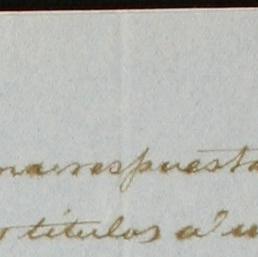 una respuesta
titulos a u